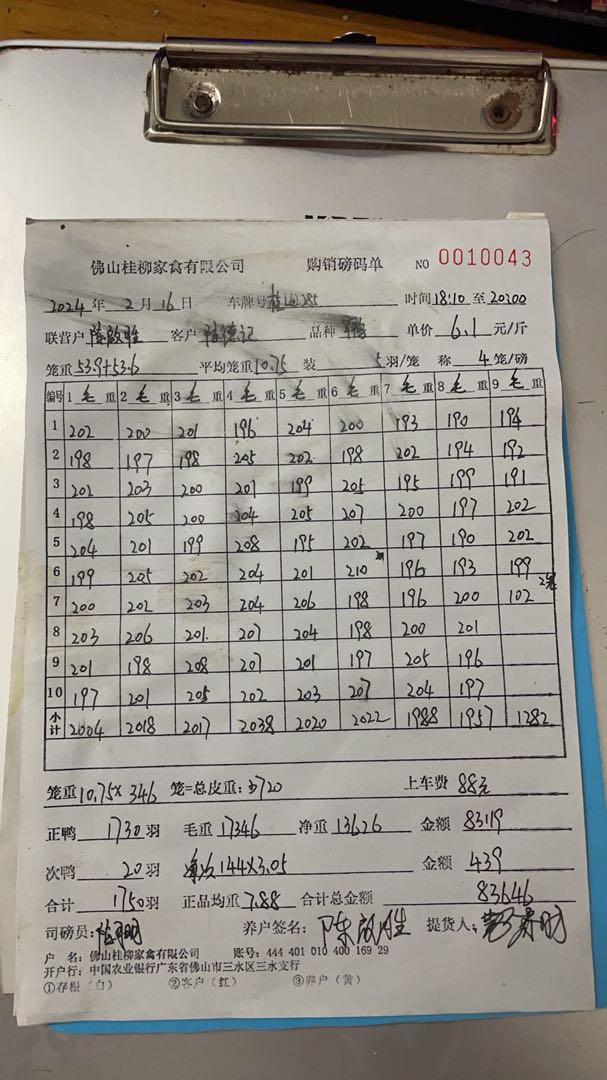 佛山桂柳家禽有限公司 购销磅码单 NO 0010043
2024 年 2 月 16 日 车牌号 时间 18:10 至 20:00
联营户 陈啟胜 客户 品种 鸭 单价 6.1 元/斤
笼重 53.9+53.6 平均笼重 10.75 装 5 羽/笼 称 4 笼/磅
编号 1 毛 重 2 毛 重 3 毛 重 4 毛 重 5 毛 重 6 毛 重 7 毛 重 8 毛 重 9 毛 重
1 202 200 201 196 204 200 193 190 194
2 198 197 198 205 202 198 202 194 192
3 202 203 200 207 199 205 195 199 191
4 198 205 200 204 205 207 200 197 202
5 204 201 199 208 195 202 197 190 202
6 199 205 202 204 201 210 196 193 199
7 200 202 203 204 206 198 196 200 102 2笼
8 203 206 201. 207 204 198 200 201
9 201 198 208 207 201 197 205 196
10 197 201 205 202 203 207 204 197
小计 2004 2018 2017 2038 2020 2022 1988 1957 1282
笼重 10.75× 346 笼=总皮重: 3720 上车费 88元
正鸭 1730 羽 毛重 17346 净重 13626 金额 83119
次鸭 20 羽 144×3.05 金额 439
合计 1750 羽 正品均重 7.88 合计总金额 83646
司磅员: 养户签名: 陈啟胜 提货人:
户 名: 佛山桂柳家禽有限公司 账号: 444 401 010 400 169 29
开户行: 中国农业银行广东省佛山市三水区三水支行
①存根(白) ②客户(红) ③养户(黄)